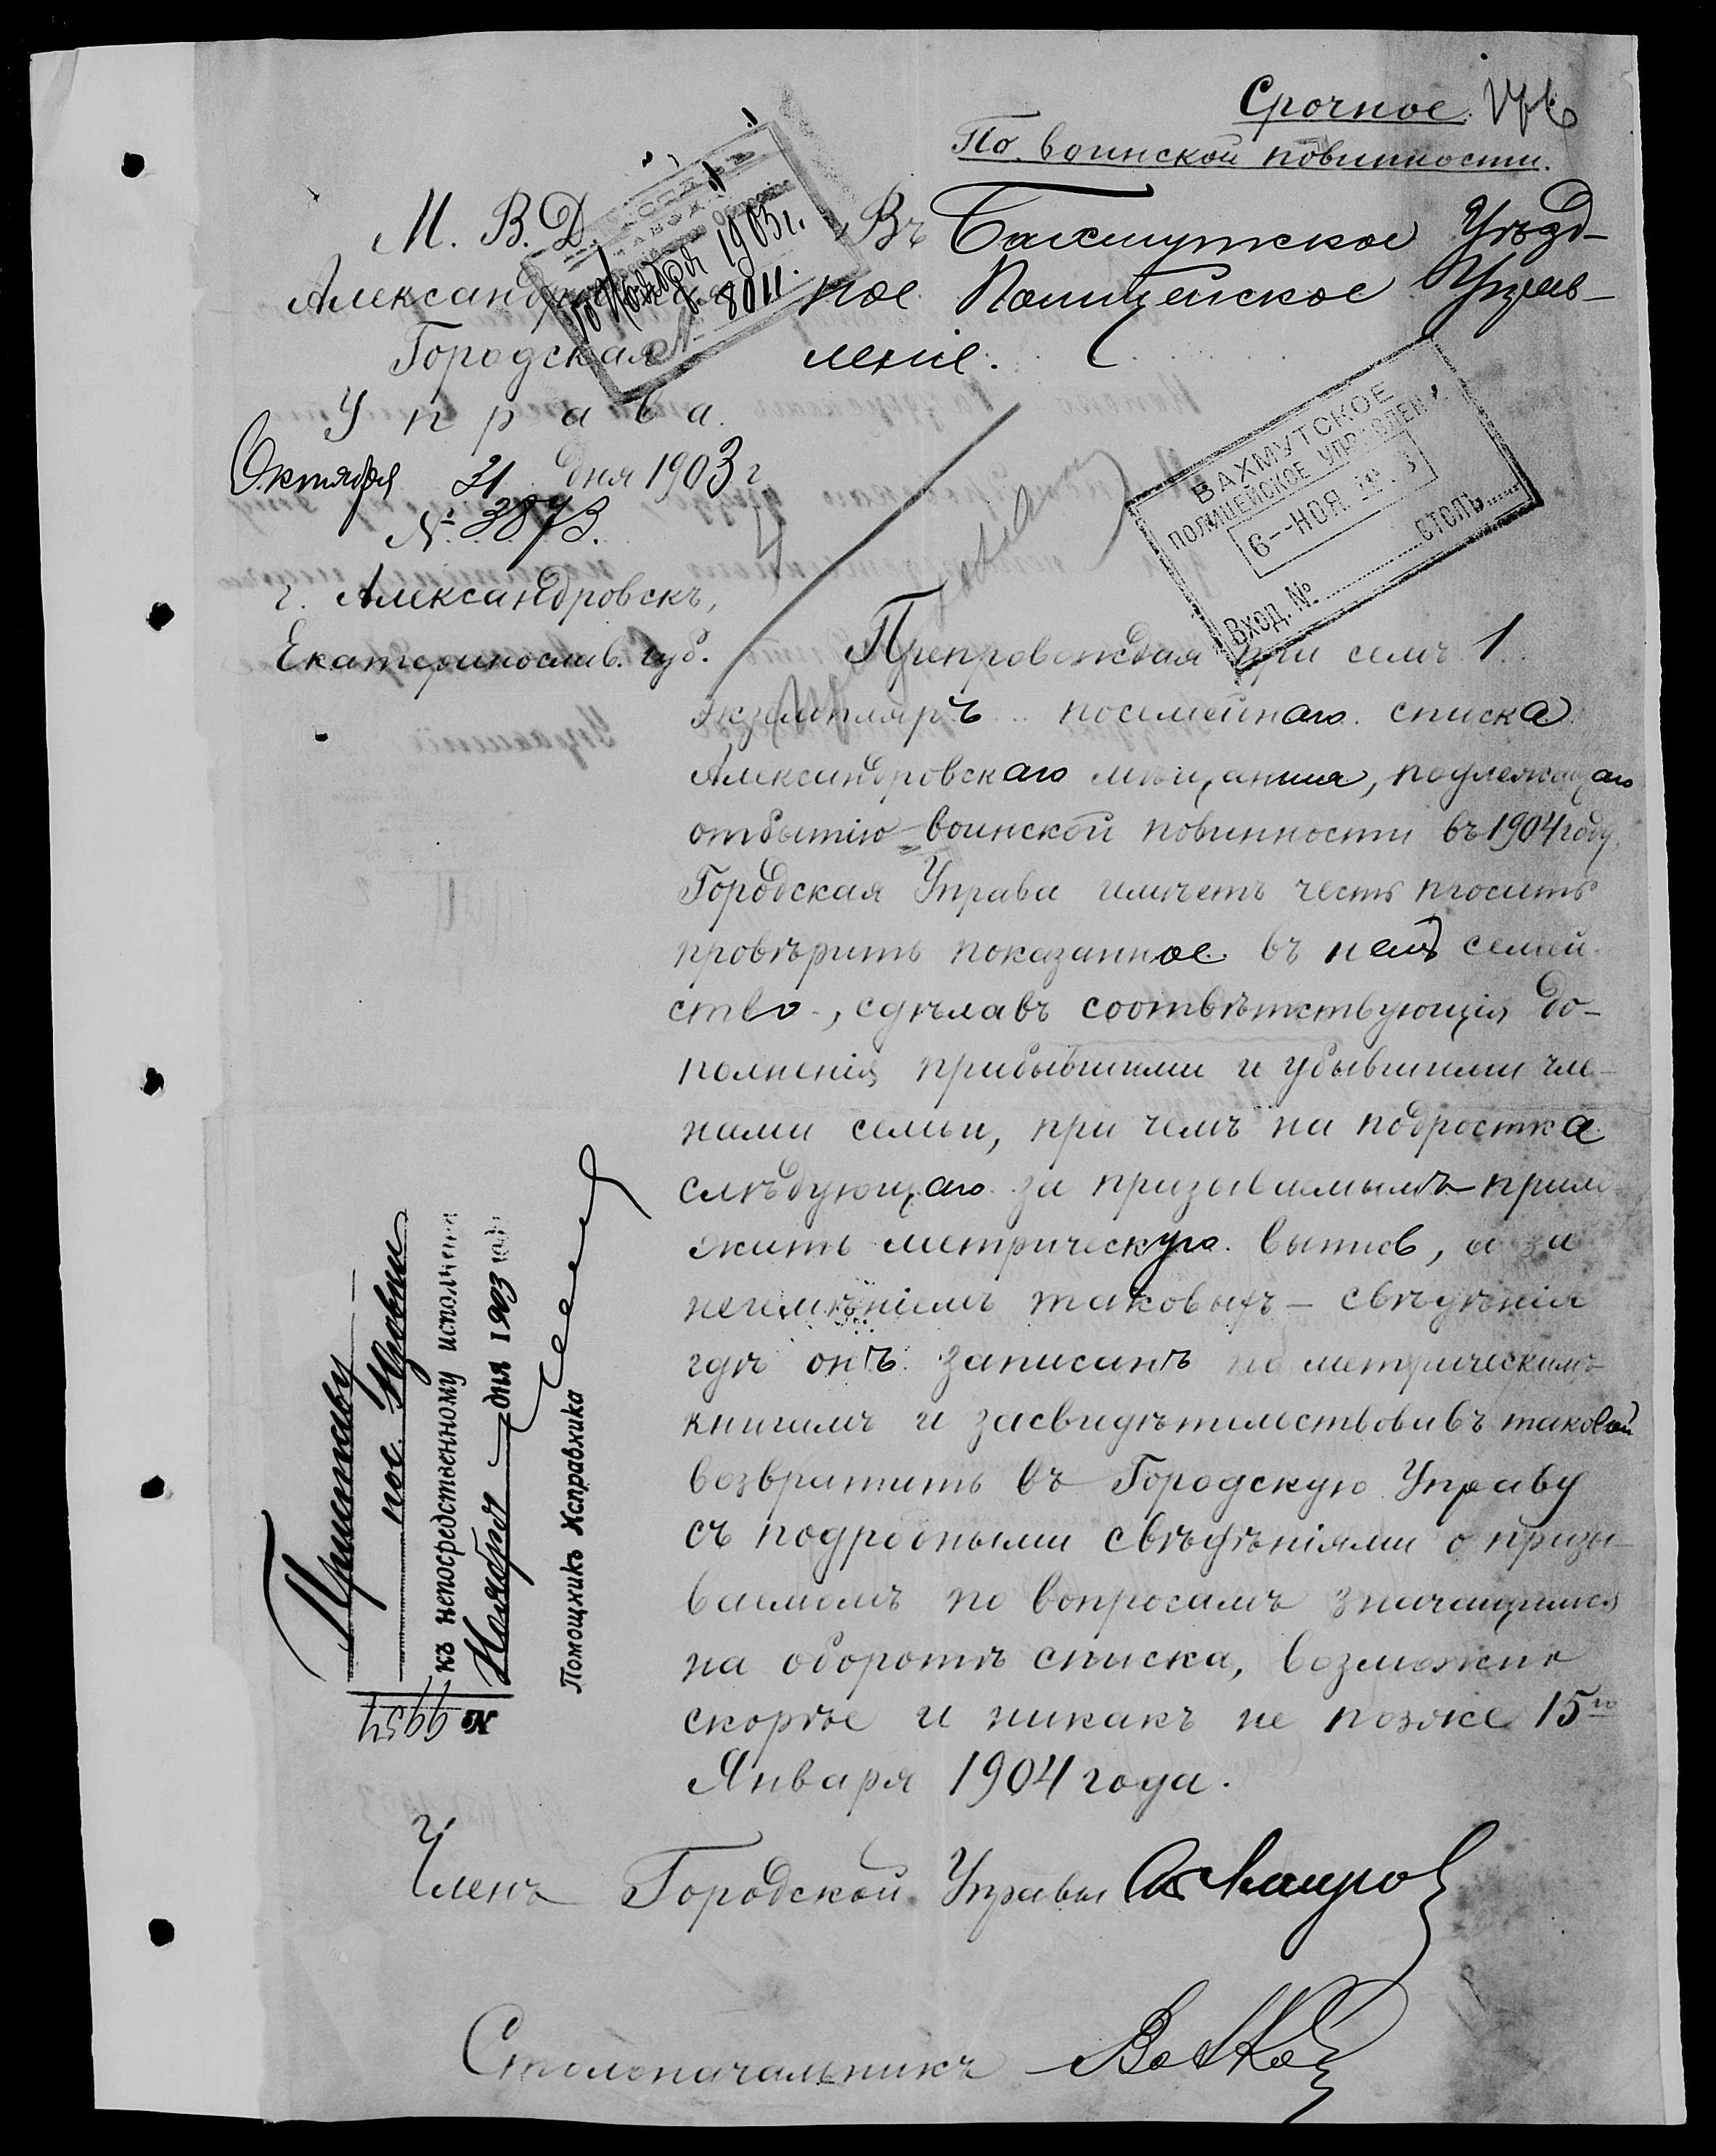 Срочное.
По воинской повинности.
М. В. Д.
Александровская
Городская
Управа.
Октября 21 дня 1903 г.
№ 3873.
г. Александровскъ,
Екатеринослав. губ.
10 Ноября 1903 г.
№ 8011.
Въ Бахмутское Уѣзд-
ное Полицейское Управ-
леніе.
БАХМУТСКОЕ
ПОЛИЦЕЙСКОЕ УПРАВЛЕНІЕ
6--НОЯ. 190 3
Вход. № СТОЛЪ
Препровождая при семъ 1
экземпляръ посемейнаго списка
Александровскаго мѣщанина, подлежащаго
отбытію воинской повинности въ 1904 году,
Городская Управа имѣетъ честь просить
провѣрить показанное въ немъ семей-
ство, сдѣлавъ соотвѣтствующія до-
полненія прибывшими и убывшими чле-
нами семьи, при чемъ на подростка
слѣдующаго за призываемымъ прило
жить метрическую выпись, а за
неимѣніемъ таковыхъ — свѣдѣнія
гдѣ онъ записанъ по метрическимъ
книгамъ и засвидѣтельствовавъ таковой
возвратить въ Городскую Управу
съ подробными свѣдѣніями о призы-
ваемомъ по вопросамъ значащимся
на оборотѣ списка, возможно
скорѣе и никакъ не позже 15го
Января 1904 года.
Членъ Городской Управы
Столоначальникъ
Приставу
пос.
къ непосредственному исполненію
Ноября дня 1903 года
Помощникъ Исправника
№ 9954